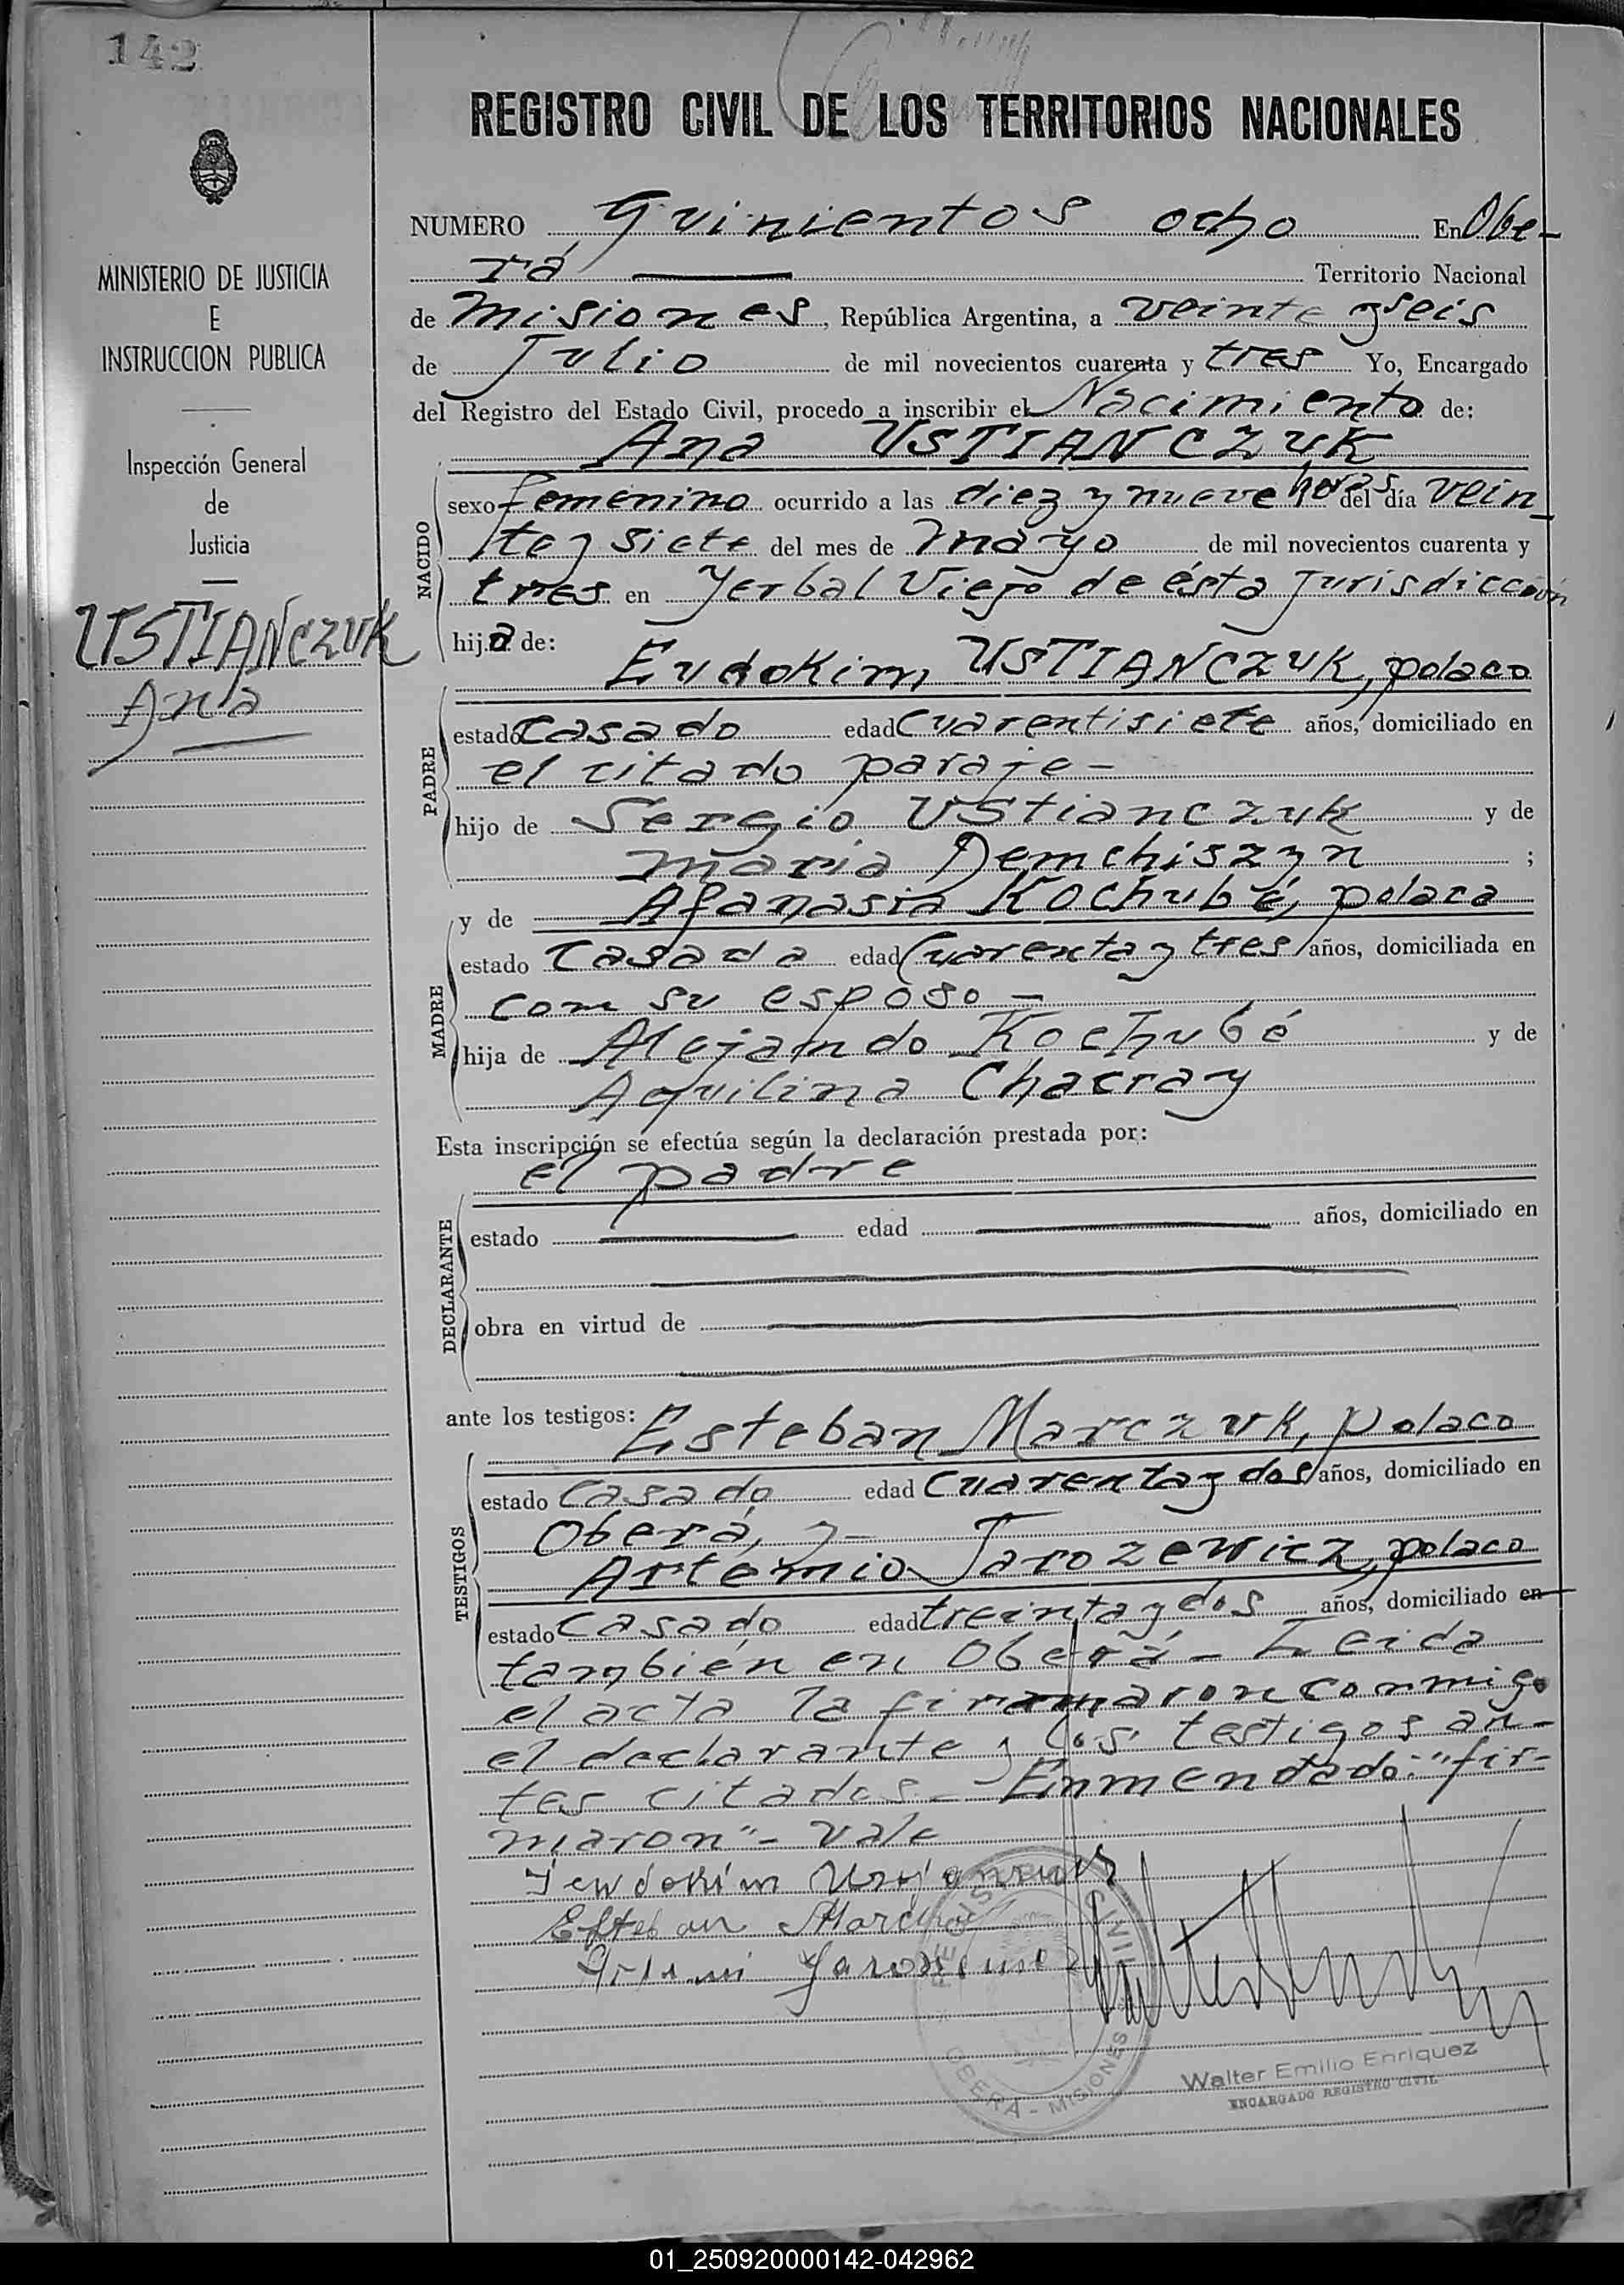 142
REGISTRO CIVIL DE LOS TERRITORIOS NACIONALES
MINISTERIO DE JUSTICIA
E
INSTRUCCION PUBLICA
Inspección General
de
Justicia
USTIAŃCZUK
Ana
NUMERO Quinientos ocho En Obe-
rá Territorio Nacional
de Misiones, República Argentina, a veinte y seis
de Julio de mil novecientos cuarenta y tres Yo, Encargado
del Registro del Estado Civil, procedo a inscribir el Nacimiento de:
Ana USTIANCZUK
NACIDO
sexo femenino ocurrido a las diez y nueve horas del día vein-
te y siete del mes de Mayo de mil novecientos cuarenta y
tres en Yerbal Viejo de ésta Jurisdicción
hija de:
Eudokim USTIAŃCZUK, polaco
PADRE
estado casado edad cuarentisiete años, domiciliado en
el citado paraje-
hijo de Sergio Ustianczuk y de
Maria Demchiszyn ;
y de Afanasia Kochubé, polaca
MADRE
estado casada edad cuarenta y tres años, domiciliada en
con su esposo -
hija de Alejando Kochubé y de
Aquilina Chacray
Esta inscripción se efectúa según la declaración prestada por:
el padre
DECLARANTE
estado edad años, domiciliado en
obra en virtud de
ante los testigos: Esteban Marczuk, polaco
TESTIGOS
estado casado edad cuarenta y dos años, domiciliado en
Oberá, y-
Artemio Jarozewicz, polaco
estado casado edad treinta y dos años, domiciliado en
también en Oberá - Leida
el acta la firmaron conmigo
el declarante y los testigos an-
tes citados.- Enmendado: "fir-
maron"- Vale
Esteban
REGISTRO CIVIL
OBERA - MISIONES
Walter Emilio Enriquez
ENCARGADO REGISTRO CIVIL
01_250920000142-042962